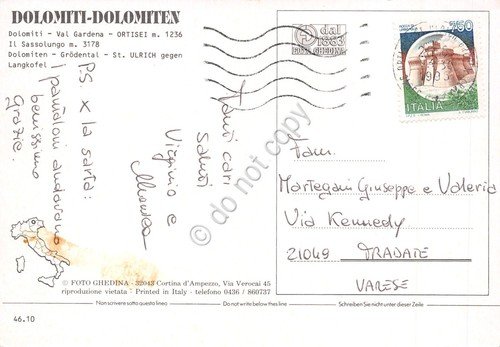 DOLOMITI-DOLOMITEN
Dolomiti - Val Gardena - ORTISEI m. 1236
Il Sassolungo m. 3178
Dolomiten - Grödental - St. ULRICH gegen
Langkofel
dal
1883
FOTO GHEDINA
750
ITALIA
Tanti cari
saluti
Virginio e
P.S x la sarta:
i pantaloni andavano
benissimo
grazie.
Fam.
Martegani Giuseppe e Valeria
Via Kennedy
21049 TRADATE
VARESE
© FOTO GHEDINA - 32043 Cortina d'Ampezzo, Via Verocai 45
riproduzione vietata - Printed in Italy - telefono 0436 / 860737
Non scrivere sotto questa linea
Do not write below this line
Schreiben Sie nicht unter dieser Zeile
46.10
do not copy